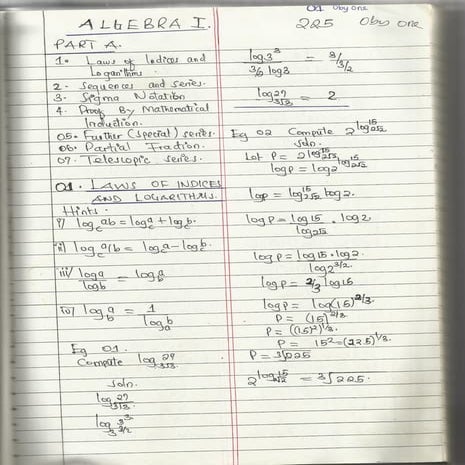 ALGEBRA I.
PART A.
1. Laws of Indices and
Logarithms.
2. Sequences and series.
3. Sigma Notation
4. Proof By Mathematical
Induction.
05. Further (special) series.
06. Partial Fraction.
07. Telescopic series.
01. LAWS OF INDICES
AND LOGARITHMS.
Hints.
i) log_c ab = log_c a + log_c b.
ii) log_c a/b = log_c a - log_c b.
iii) log a / log b = log_b a
iv) log_b a = 1 / log_a b
Eg 01.
Compute log_3√3 27
soln.
log_3√3 27
log_3^3/2 3^3
01 Oby one
225 Oby one
log 3^3 / 3/2 log 3 = 3 / 3/2
log_3√3 27 = 2
Eg 02 Compute 2^log_2√2 15
soln.
Let P = 2^log_2√2 15
log P = log 2^log_2√2 15
log P = log_2√2 15 log 2.
log P = log 15 / log 2√2 . log 2
log P = log 15 . log 2 / log 2^3/2
log P = 2/3 log 15
log P = log (15)^2/3
P = (15)^2/3
P = ((15)^2)^1/3.
P = 15^2 = (225)^1/3.
P = ∛225
2^log_2√2 15 = ∛225.